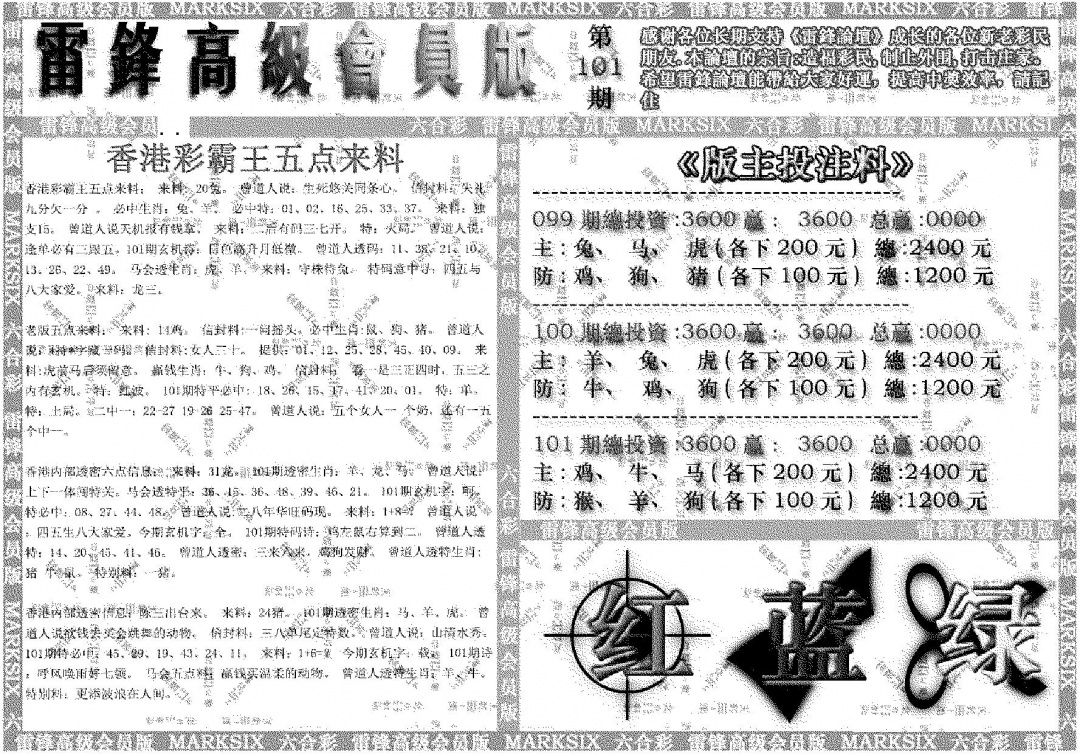 雷锋高级会员版 MARKSIX 六合彩 雷锋高级会员版 MARKSIX 六合彩 雷锋高级会员版 MARKSIX 六合彩
雷鋒高級會員版
第
101
期
感謝各位长期支持《雷鋒論壇》成长的各位新老彩民
朋友.本論壇的宗旨:造福彩民,制止外围,打击庄家。
希望雷鋒論壇能帶給大家好運，提高中獎效率，請記
住
雷锋高级会员 六合彩 雷锋高级会员版 MARKSIX 六合彩 雷锋高级会员版 MARKSI
香港彩霸王五点来料
香港彩霸王五点来料： 来料：20兔。 曾道人说：生死悠关同条心。 信封料：失礼
九分欠一分 。 必中生肖：兔、羊。 必中特：01、02、16、25、33、37。 来料：独
支15。 曾道人说天机报有钱拿。 来料：二后有码三七开。 特：火码。 曾道人说：
逢单必有二跟五。101期玄机诗：白色高升月低微。 曾道人透码：11、28、21、10、
13、26、22、49。 马会透生肖：虎、羊。 来料：守株待兔。 特码意中寻：四五与
八大家爱。来料：龙三。
老版五点来料： 来料：14鸡。 信封料:一问摇头。必中生肖:鼠、狗、猪。 曾道人
信封料:女人三十。 提供：01、12、25、28、45、40、09。 来
料:虎前马后须留意。 赢钱生肖：牛、狗、鸡。 信封料： 看一是三正四时，五三之
内有玄机。 特：红波。 101期特平必中：18、26、15、17、41、20、01。 特：单。
特：土局。 二中一：22-27 19-26 25-47。 曾道人说：五个女人一 个奶，还有一五
个中一。
香港内部透密六点信息： 来料：31龙。 101期透密生肖：羊、龙、马。 曾道人说：
上下一体闯特关。马会透特平：36、15、36、48、39、46、21。 101期玄机字：
特必中：08、27、44、48。 曾道人说:二八年华旺码现。 来料：1+8=? 曾道人说
：四五生八大家爱。今期玄机字：全。 101期特码诗：鸡左鼠右算到二。 曾道人透
特：14、20、45、41、46。 曾道人透密：三来六来，骑狗发财。 曾道人透特生肖:
猪 牛 鼠。 特别料：一猪。
香港内部透密信息：陈三出台来。 来料：24猪。 101期透密生肖：马、羊、虎。 曾
道人说欲钱去买会跳舞的动物。 信封料：三八单尾定特数。 曾道人说：山清水秀。
101期特必中：45、29、19、43、24、11。 来料：1+6=? 今期玄机字：载。 101期诗
：呼风唤雨好七领。 马会五点料：赢钱买温柔的动物。 曾道人透特生肖：羊、牛。
特别料：更添波浪在人间。
《版主投注料》
099 期總投資:3600 赢： 3600 总赢:0000
主：兔、 马、 虎(各下200元) 總:2400元
防：鸡、 狗、 猪(各下100元) 總:1200元
100 期總投資:3600 赢： 3600 总赢:0000
主：羊、 兔、 虎(各下200元) 總:2400元
防：牛、 鸡、 狗(各下100元) 總:1200元
101 期總投資:3600 赢： 3600 总赢:0000
主：鸡、 牛、 马(各下200元) 總:2400元
防：猴、 羊、 狗(各下100元) 總:1200元
雷锋高级会员版 雷锋高级会员版
红 蓝 绿
雷锋高级会员版 MARKSIX 六合彩 雷锋高级会员版 MARKSIX 六合彩 雷锋高级会员版 MARKSIX 六合彩